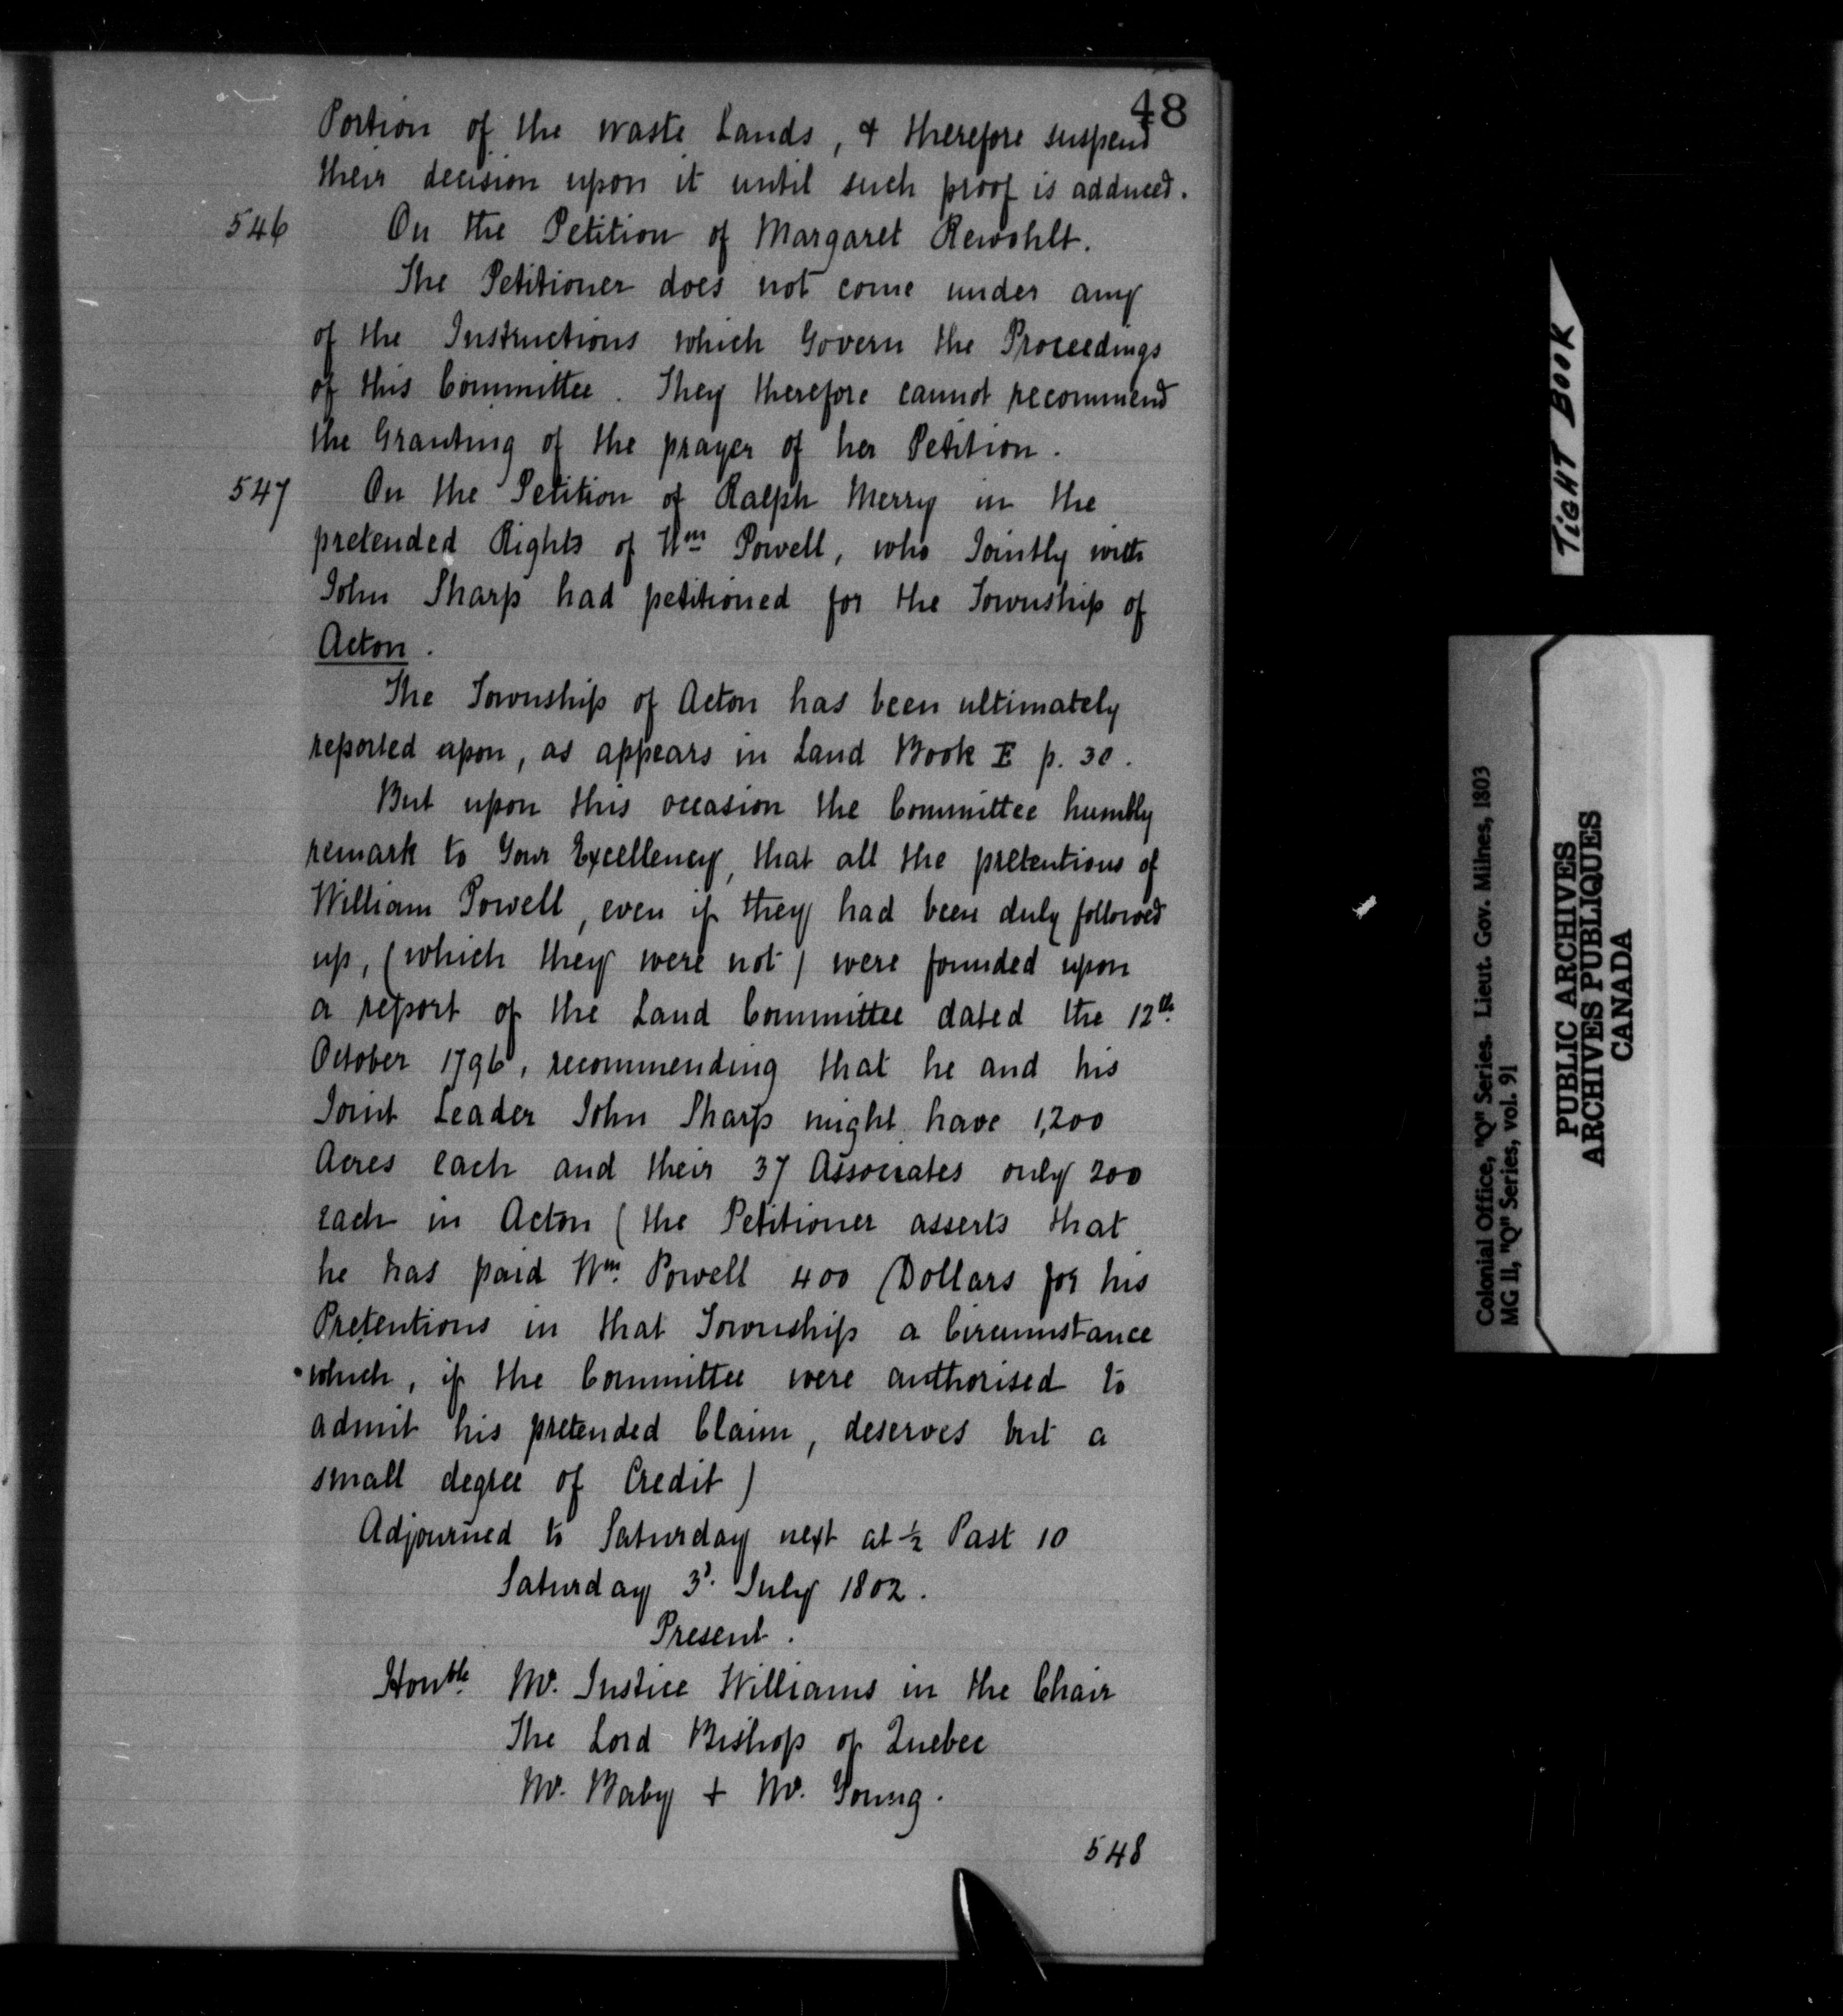 48
Portion of the waste Lands, & therefore suspend
their decision upon it until such proof is adduced.
546 On the Petition of Margaret Rewohlt.
The Petitioner does not come under any
of the Instructions which Govern the Proceedings
of this Committee. They therefore cannot recommend
the Granting of the prayer of her Petition.
547 On the Petition of Ralph Merry in the
pretended Rights of Wm Powell, who Jointly with
John Sharp had petitioned for the Township of
Acton.
The Township of Acton has been ultimately
reported upon, as appears in Land Book E p. 30.
But upon this occasion the Committee humbly
remark to Your Excellency, that all the pretentions of
William Powell, even if they had been duly followed
up, (which they were not) were founded upon
a report of the Land Committee dated the 12th
October 1796, recommending that he and his
Joint Leader John Sharp might have 1,200
Acres each and their 37 Associates only 200
each in Acton (the Petitioner asserts that
he has paid Wm. Powell 400 Dollars for his
Pretentions in that Township a Circumstance
which, if the Committee were authorised to
admit his pretended Claim, deserves but a
small degree of Credit)
Adjourned to Saturday next at ½ Past 10
Saturday 3d. July 1802.
Present.
Honble. Mr. Justice Williams in the Chair
The Lord Bishop of Quebec
Mr. Baby + Mr. Young.
548
TIGHT BOOK
Colonial Office, "Q" Series. Lieut. Gov. Milnes, 1803
MG 11, "Q" Series, vol. 91
PUBLIC ARCHIVES
ARCHIVES PUBLIQUES
CANADA